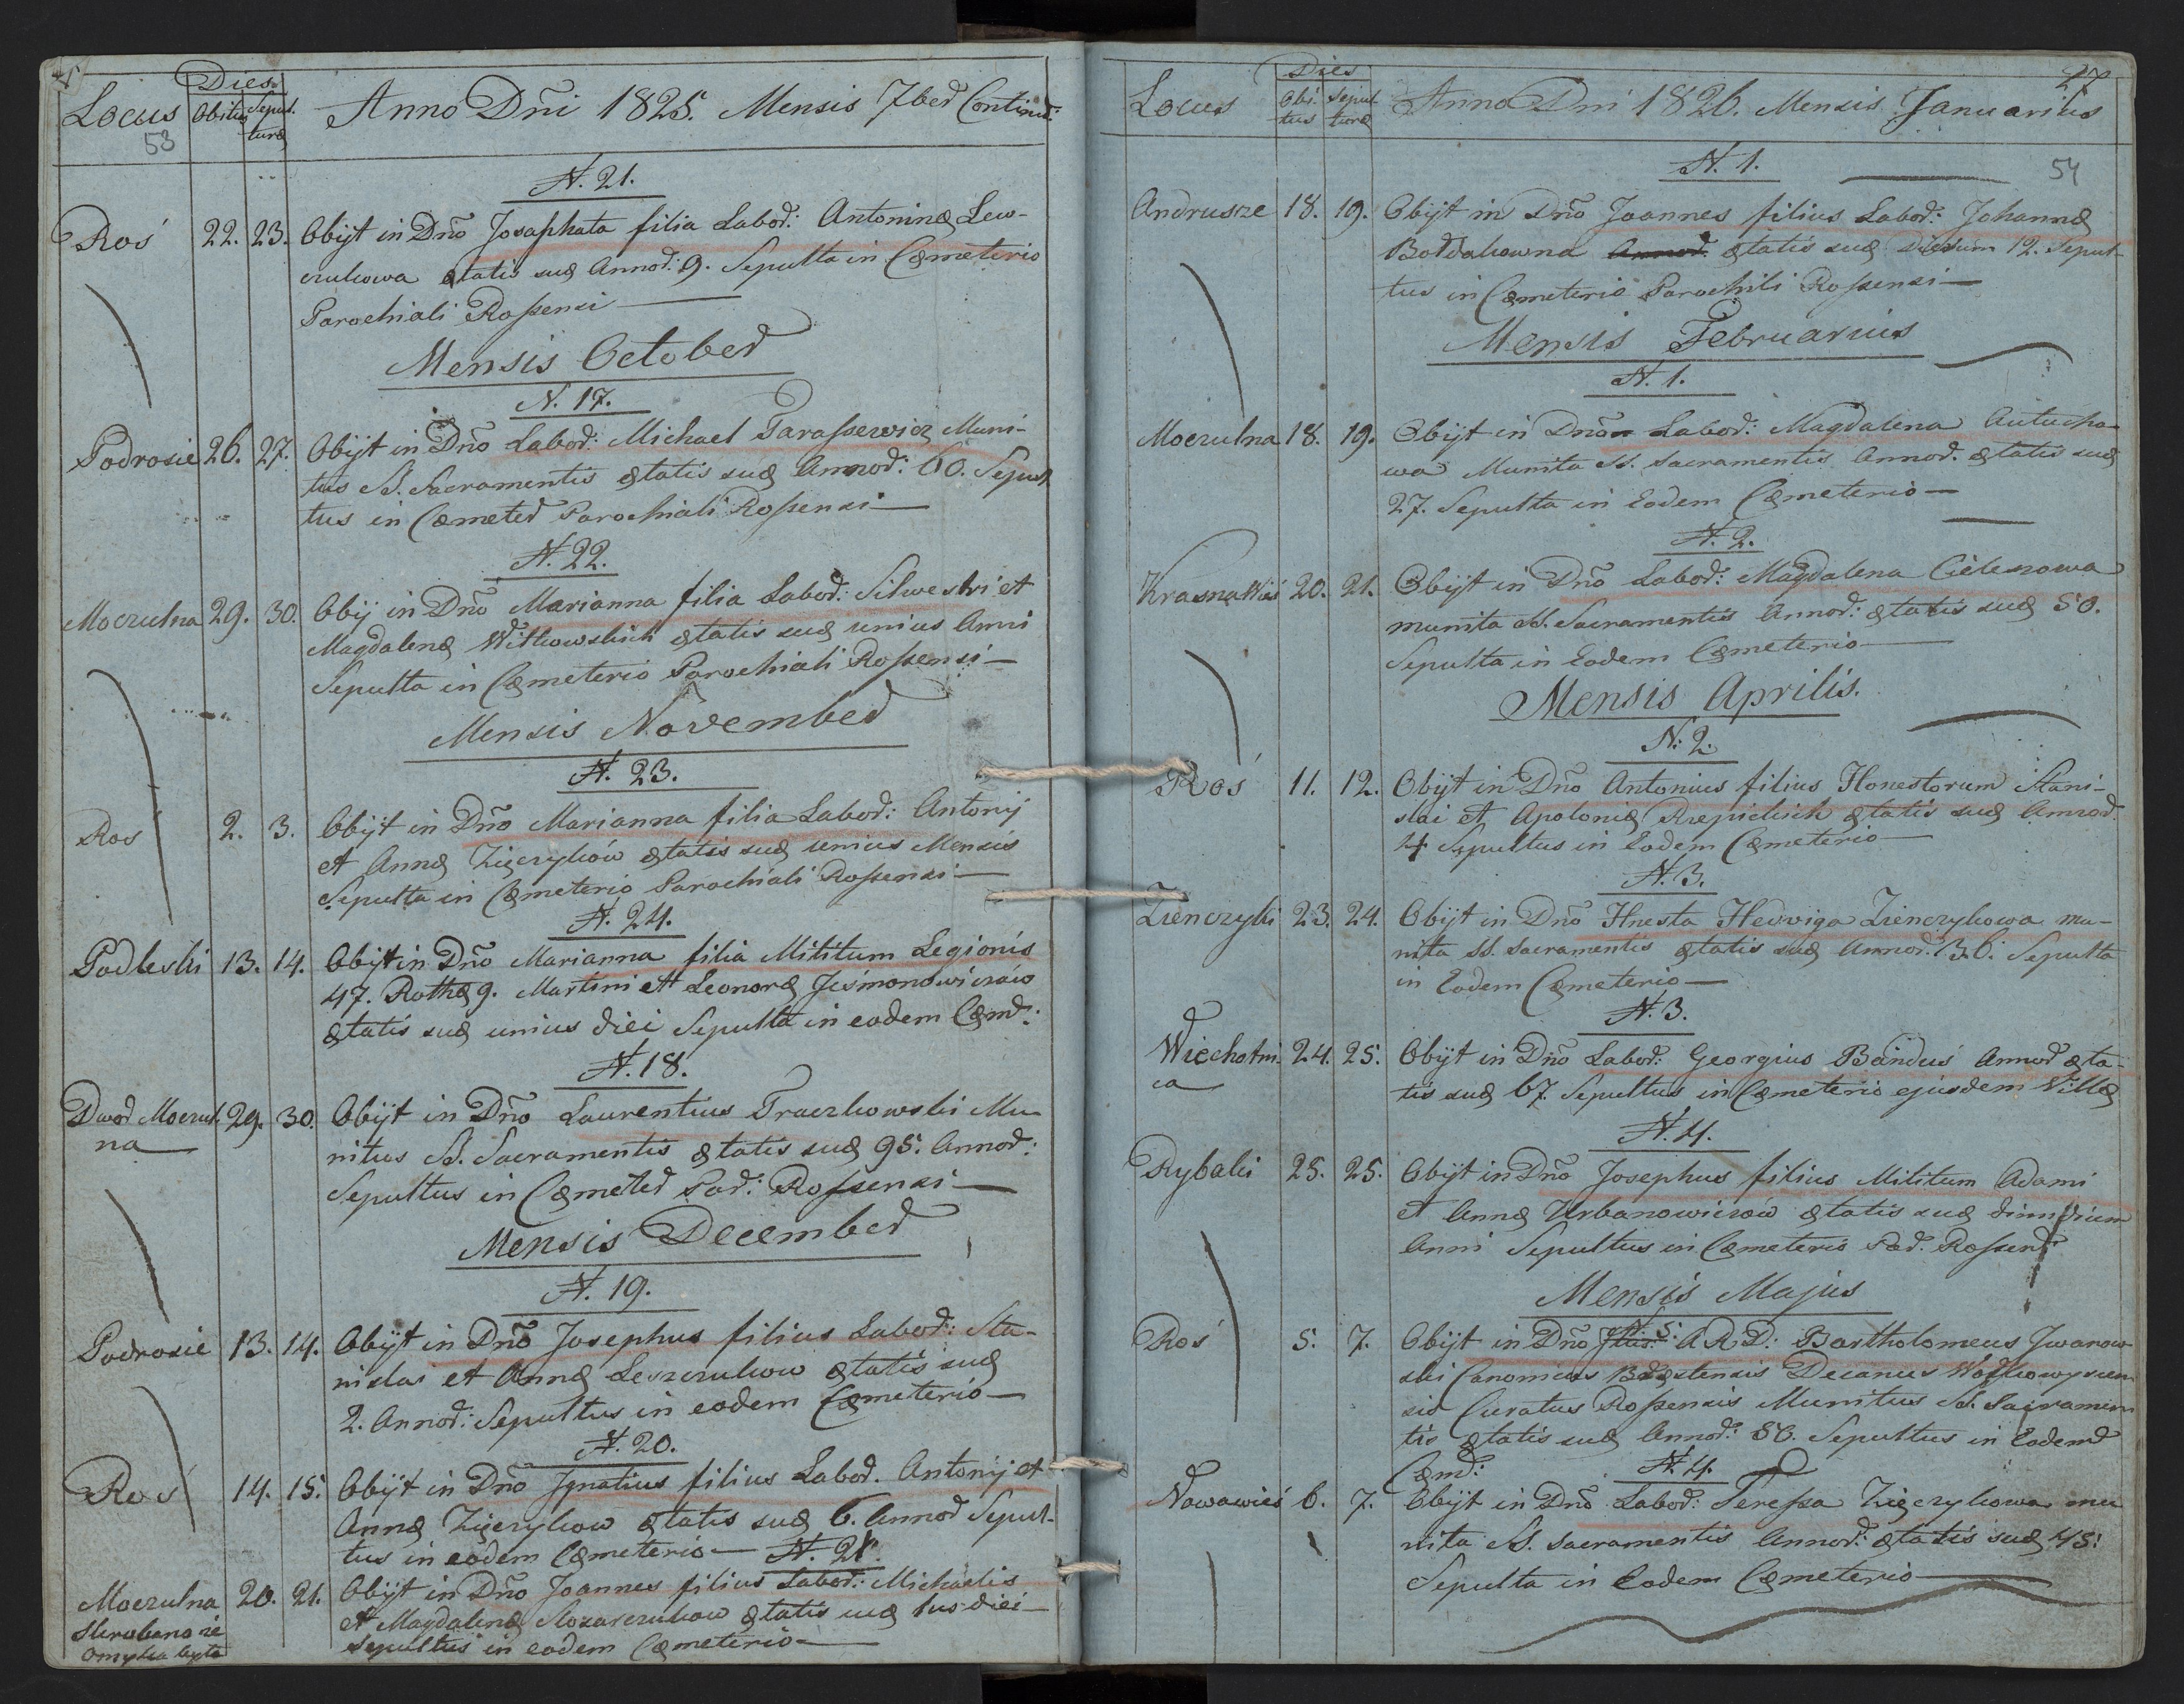 Locus
Dies
Obitus Sepulturæ
Anno Dñi 1825. Mensis 7ber Continu:
53
N. 21.
Roś 22. 23. Obijt in Dño Josaphata filia Labor: Antoninæ Lew-
czukowa ætatis suæ Annor: 9. Sepulta in Cæmeterio
Parochiali Rossensi
Mensis October
N. 17.
Podrosie 26. 27. Obijt in Dño Labor: Michael Tarassewicz Muni-
tus SS. Sacramentis ætatis suæ Annor: 60. Sepul
tus in Cæmeter Parochiali Rossensi
N. 22.
Moczulna 29. 30. Obij in Dño Marianna filia Labor: Silwestri et
Magdalenæ Witkowskich ætatis suæ unius Anni
Sepulta in Cæmeterio Parochiali Rossensi
Mensis November
N. 23.
Roś 2. 3. Obijt in Dño Marianna filia Labor: Antonij
et Annæ Zięzyków ætatis suæ unius Mensis
Sepulta in Cæmeterio Parochiali Rossensi
N. 24.
Podleski 13. 14. Obijt in Dño Marianna filia Militum Legionis
47. Rothæ 9. Martini et Leonoræ Jesmonowiczów
ætatis suæ unius diei Sepulta in eodem Cæm:
N. 18.
Dwor Moczul- 29. 30. Obijt in Dño Laurentius Traczkowski Mu-
na
nitus SS. Sacramentis ætatis suæ 95. Annor:
Sepultus in Cæmeter Par: Rossensi
Mensis December
N. 19.
Podrosie 13. 14. Obijt in Dño Josephus filius Labor: Sta-
nislai et Annæ Leszczukow ætatis suæ
2. Annor: Sepultus in eodem Cæmeterio
N. 20.
Roś 14. 15. Obijt in Dño Ignatius filius Labor. Antonij et
Annæ Zięzykow ætatis suæ 6. Annor Sepul-
tus in eodem Cæmeterio N. 21.
Moczulna 20. 21. Obijt in Dño Joannes filius Labor: Michaelis
et Magdalenæ ætatis suæ 1us diei
sepultus in eodem Cæmeterio
Skrobano ze
omyłka była
27
Locus
Dies
Obitus Sepulturæ
Anno Dni 1826. Mensis Januarius
54
N. 1.
Andrusze 18. 19. Obijt in Dño Joannes filius Labor: Johannæ
Bołdakowna Annor. ætatis suæ Dierum 12. Sepul-
tus in Cæmeterio Parochili Rossensi
Mensis Februarius
N. 1.
Moczulna 18. 19. Obijt in Dño Labor: Magdalena Autucho-
wa Munita SS. Sacramentis Annor. ætatis suæ
27. Sepulta in Eodem Cæmeterio
N. 2.
Krasnawieś 20. 21. Obijt in Dño Labor: Magdalena Cieleszowa
munita SS. Sacramentis Annor: ætatis suæ 50.
Sepulta in Eodem Cæmeterio
Mensis Aprilis.
N. 2.
Roś 11. 12. Obijt in Dño Antonius filius Honestorum Stani-
slai et Apoloniæ Rzepickich ætatis suæ Annor.
4 Sepultus in Eodem Cæmeterio
N. 3.
Zienczyki 23. 24. Obijt in Dño Hnesta Hedviga Zienczykowa mu-
nita SS. Sacramentis ætatis suæ Annor. 36. Sepulta
in Eodem Cæmeterio
N. 3.
Wiechotni- 24. 25. Obijt in Dño Labor: Georgius Banduś Annor æta-
ca
tis suæ 67. Sepultus in Cæmeterio ejusdem Villæ
N. 4.
Rybaki 25. 25. Obijt in Dño Josephus filius Militum Adami
et Annæ Urbanowiczów ætatis suæ dimidium
Anni Sepultus in Cæmeterio Par. Rossens:
Mensis Majus
N. 5.
Roś 5. 7. Obijt in Dño A R D: Bartholomeus Jwanow-
ski Canonicus Brzestensis Decanus Wołkowyscen
sis Curatus Rossensis Munitus SS. Sacramen
tis ætatis suæ Annor: 56. Sepultus in Eodem
Cæm:
N. 4.
Nowawieś 6. 7. Obijt in Dño Labor: Teressa Zięzykowa mu
nita SS. Sacramentis Annor: ætatis suæ 45.
Sepulta in Eodem Cæmeterio